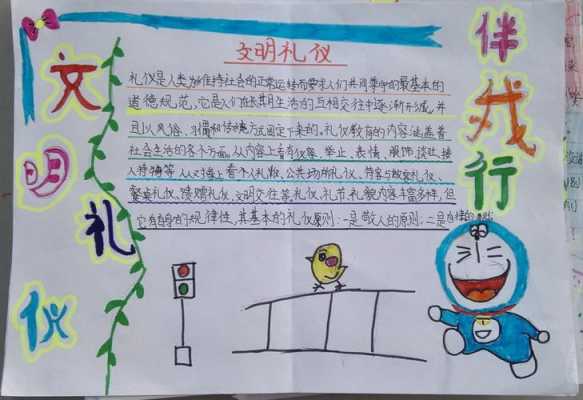 文明礼仪
伴我行
文明礼仪
礼仪是人类为维持社会的正常运转而要求人们共同遵守的最基本的
道德规范,它是人们在长期生活的互相交往中逐渐形成,并
且以风俗、习惯和传统方式固定下来的。礼仪教育的内容涵盖着
社会生活的各个方面。从内容上看有仪容、举止、表情、服饰、谈吐、待
人接物等。从对象上看个人礼仪、公共场所礼仪、待客与做客礼仪、
餐桌礼仪、馈赠礼仪、文明交往等。礼仪、礼节、礼貌内容丰富多样,但
它有自身的规律性,其基本的礼仪原则:一是敬人的原则;二是自律的